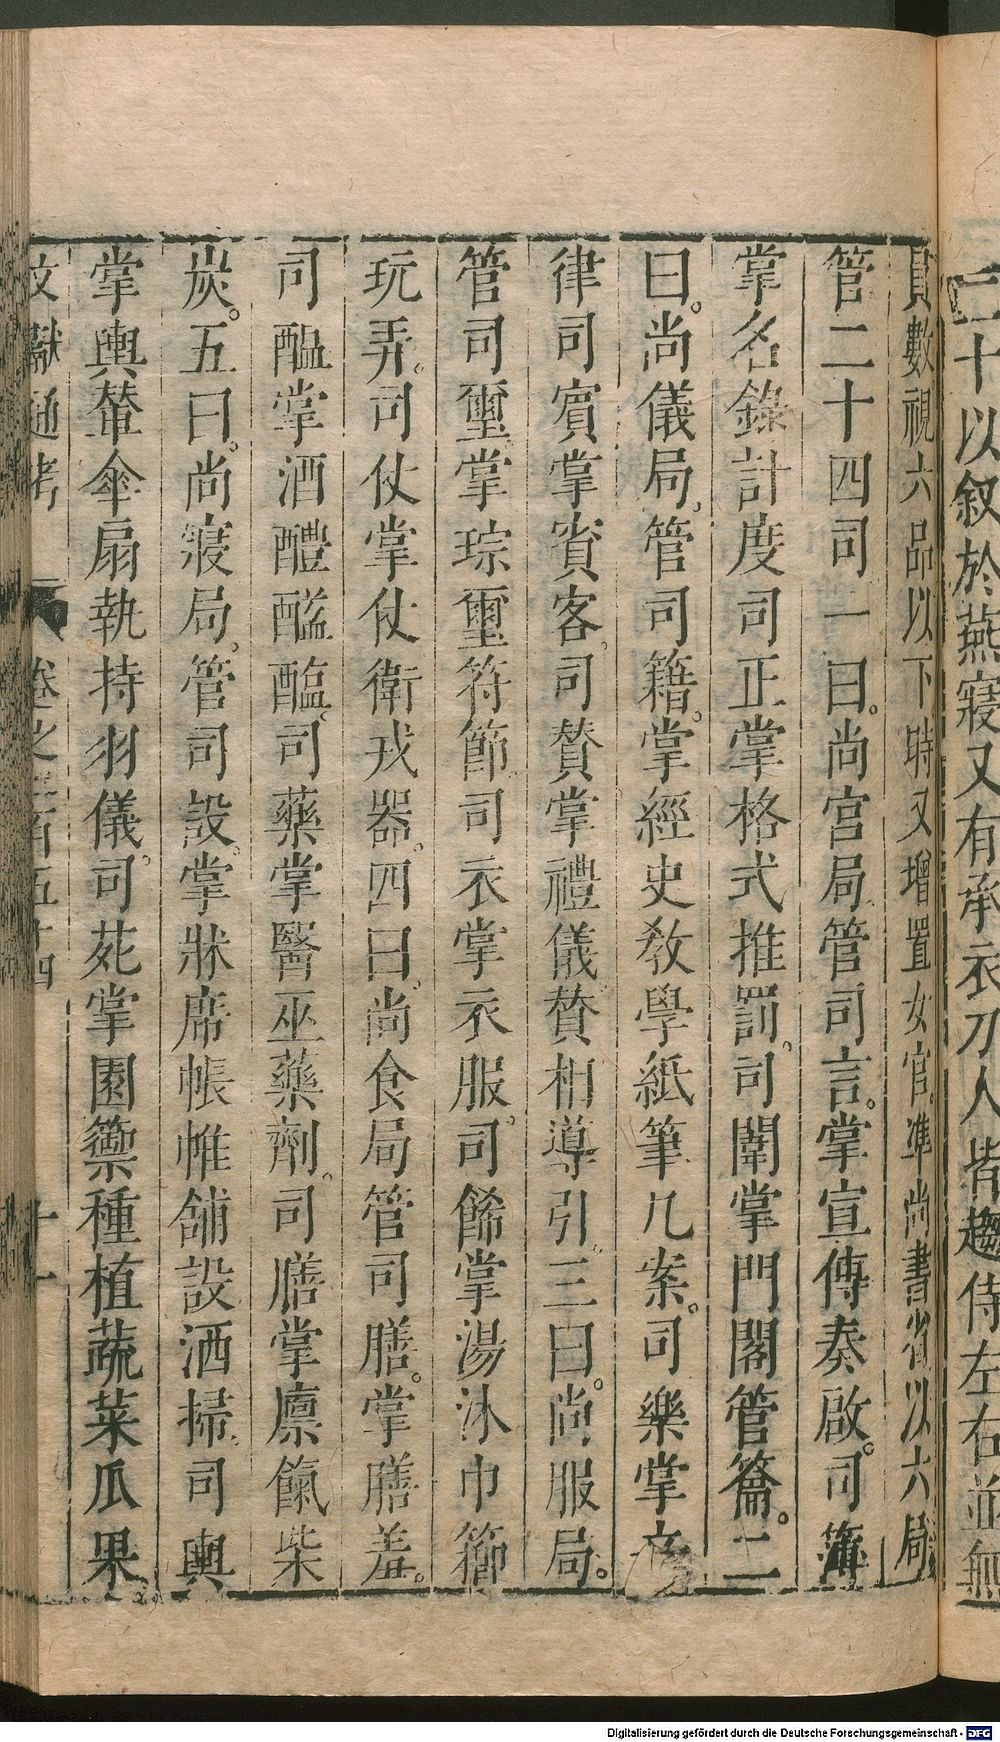 二十以叙於燕寢又有承衣刀人皆趨侍左右並無
員數視六品以下時又增置女官準尚書省以六局
管二十四司一曰尚宮局管司言掌宣傳奏啟司簿
掌名錄計度司正掌格式推罰司闈掌門閣管籥二
曰尚儀局管司籍掌經史教學紙筆几案司樂掌音
律司賓掌賓客司贊掌禮儀贊相導引三曰尚服局
管司璽掌琮璽符節司衣掌衣服司飾掌湯沐巾櫛
玩弄司仗掌仗衛戎器四曰尚食局管司膳掌膳羞
司醞掌酒醴醯醢司藥掌醫巫藥劑司膳掌廩餼柴
炭五曰尚寢局管司設掌牀席帳帷舖設洒掃司輿
掌輿輦傘扇執持羽儀司苑掌園籞種植蔬菜瓜果
文獻通考 卷之二百五十四 十一
Digitalisierung gefördert durch die Deutsche Forschungsgemeinschaft - DFG